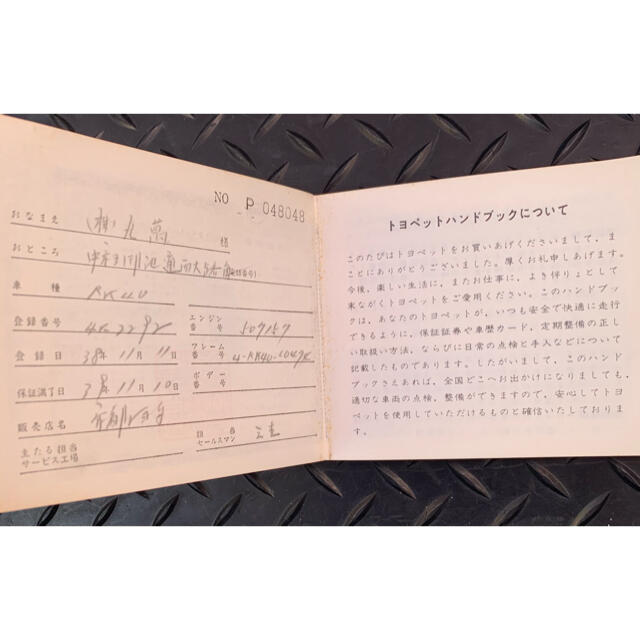 NO P 048048
おなまえ (株)丸萬 様
おところ
車種 RK40
登録番号
エンジン番号 509157
登録日 38年11月11日
フレーム番号
保証満了日 年11月10日
ボデー番号
販売店名
担当セールスマン
主たる担当
サービス工場
トヨペットハンドブックについて
このたびはトヨペットをお買いあげくださいまして、ま
ことにありがとうございました。厚くお礼申しあげます。
今後、楽しい生活に、またお仕事に、よき伴りょとして
末ながくトヨペットをご愛用ください。このハンドブッ
クは、あなたのトヨペットが、いつも安全で快適に走行
できるように、保証証券や車歴カード、定期整備の正し
い取扱い方法、ならびに日常の点検と手入などについて
記載したものであります。したがいまして、このハンド
ブックさえあれば、全国どこへお出かけになりましても、
適切な車両の点検、整備ができますので、安心してトヨ
ペットを使用していただけるものと確信いたしておりま
す。